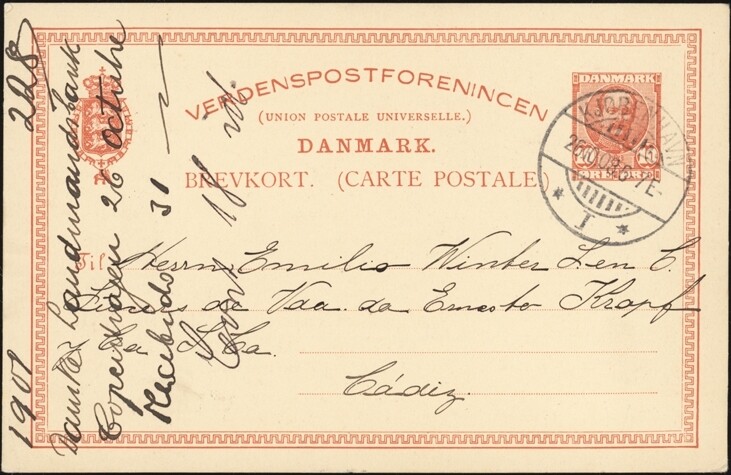 VERDENSPOSTFORENINGEN
(UNION POSTALE UNIVERSELLE.)
DANMARK.
BREVKORT. (CARTE POSTALE.)
DANMARK
10 10
ØRE ØRE
KJØBENHAVN
26.10.08. 6-7 E
T
Til Herrn Emilio Winter Sen C.
de Vda. de Ernesto Krapf
Ca S. Ca.
Cádiz.
1908 228
Danske Landmandsbank
Copenhagen 26 octubre
Recibido 31
18 id.